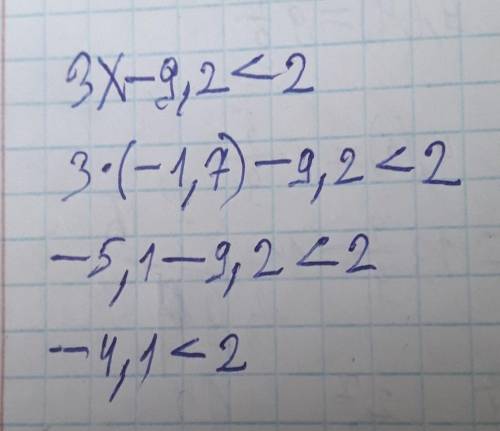 3x-9,2<2
3·(-1,7)-9,2<2
-5,1-9,2<2
-4,1<2